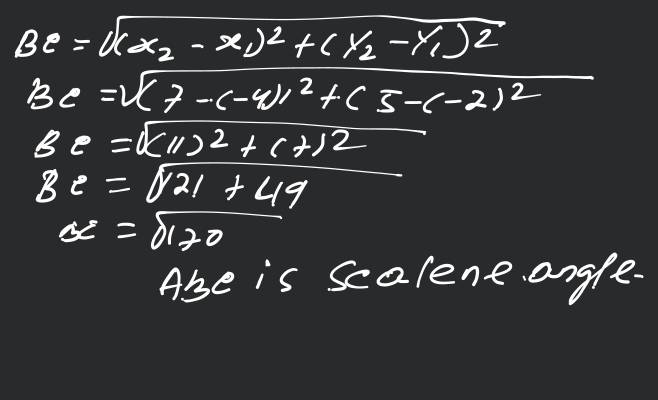 BC = √(x₂ - x₁)² + (Y₂ - Y₁)²
BC = √(7 - (-4))² + (5 - (-2)²
BC = √(11)² + (7)²
BC = √121 + 49
BC = √170
ABC is scalene angle.